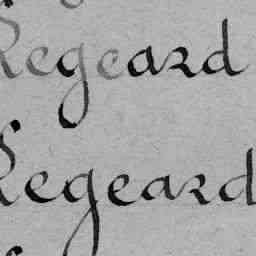 Regeard
Regeard